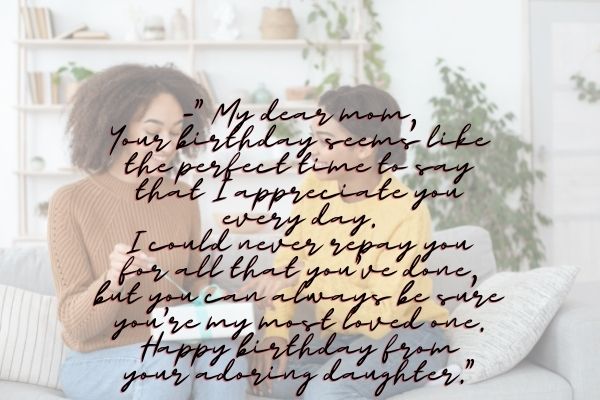 -" My dear mom,
Your birthday seems like
the perfect time to say
that I appreciate you
every day.
I could never repay you
for all that you've done,
but you can always be sure
you're my most loved one.
Happy birthday from
your adoring daughter."